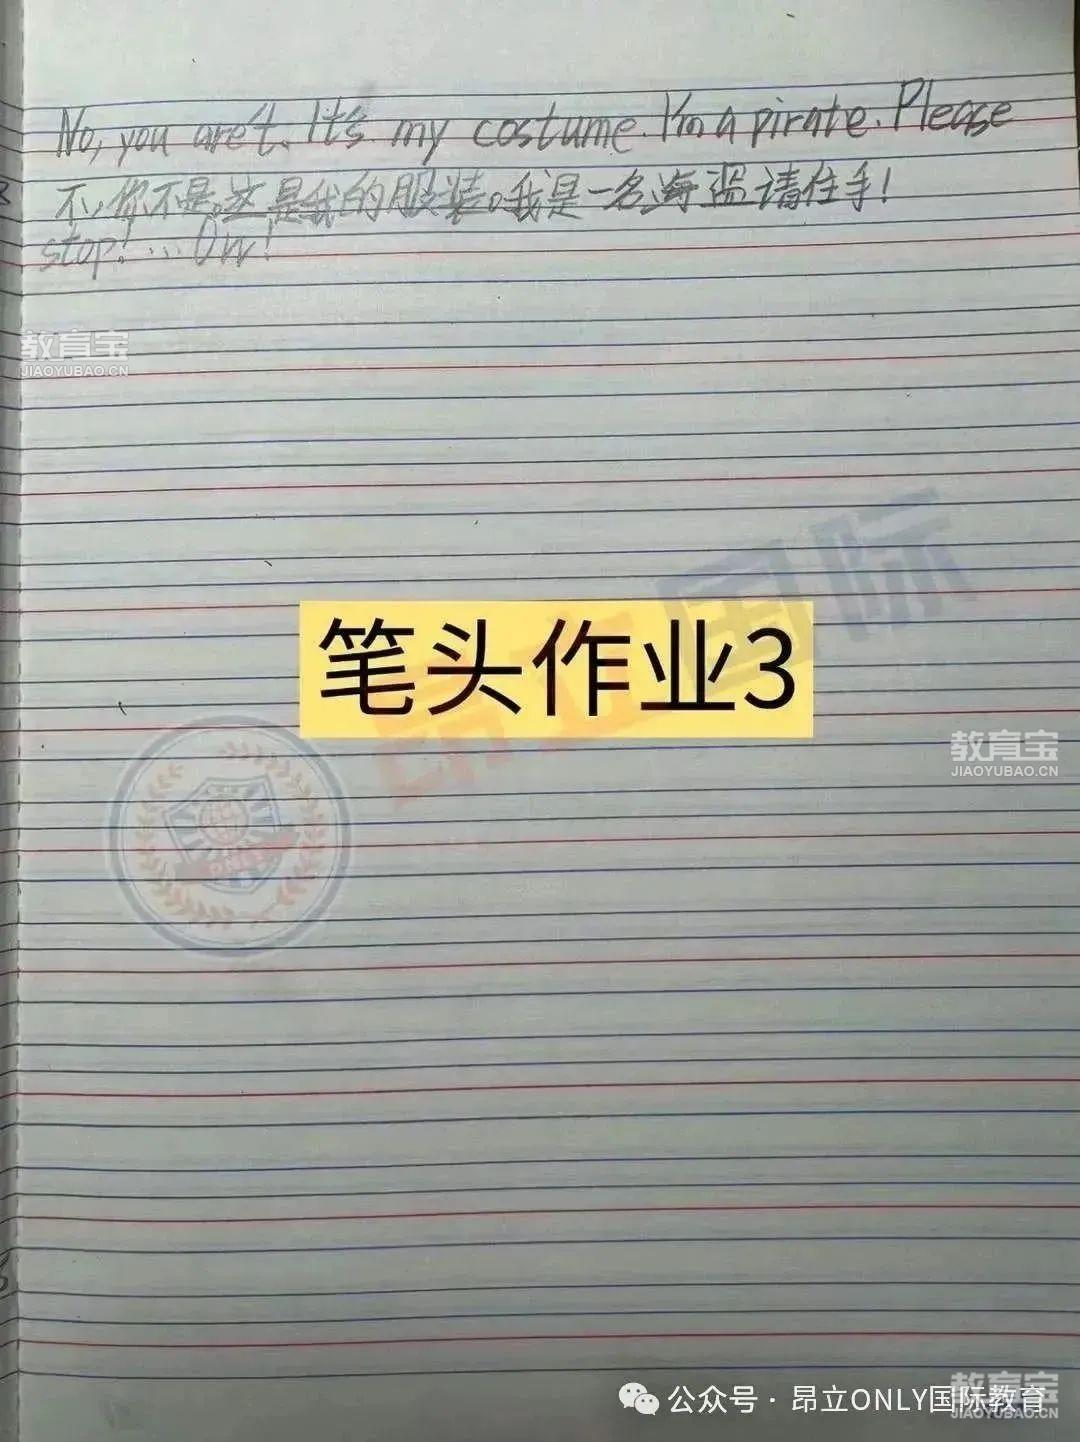 No, you are't. It's my costume. I'm a pirate. Please
不,你不是。这是我的服装。我是一名海盗请住手!
stop!... Ow!
教育宝
JIAOYUBAO.CN
昂立国际
笔头作业3
教育宝
JIAOYUBAO.CN
教育宝
JIAOYUBAO.CN
公众号·昂立ONLY国际教育